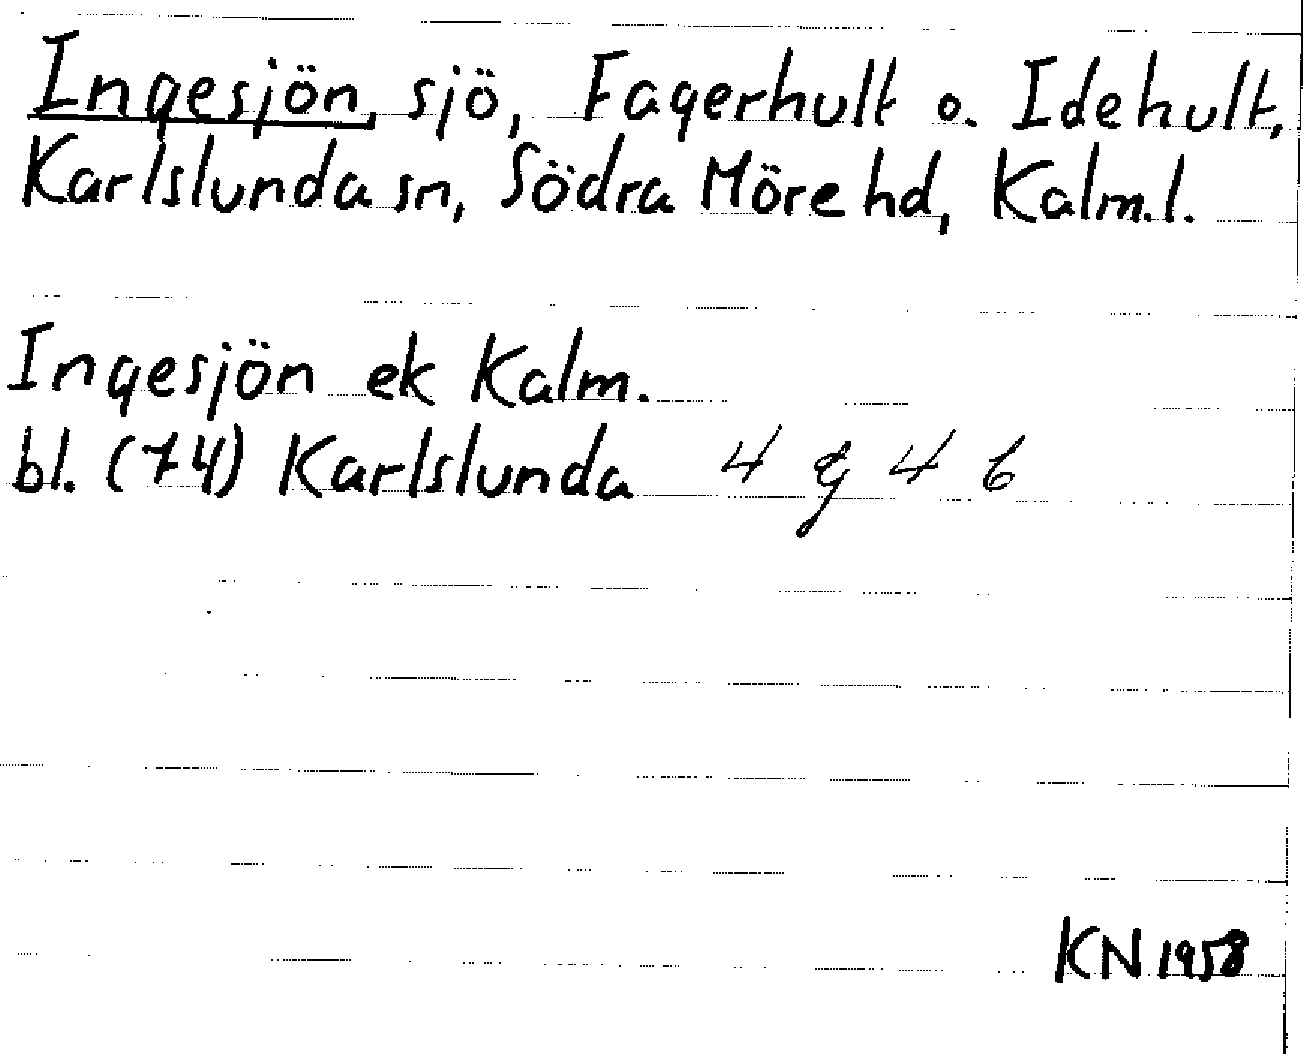 Ingesjön, sjö, Fagerhult o. Idehult,
Karlslunda sn, Södra Möre hd, Kalm.l.
Ingesjön ek Kalm.
bl. (74) Karlslunda 4 g 4 6
KN 1958